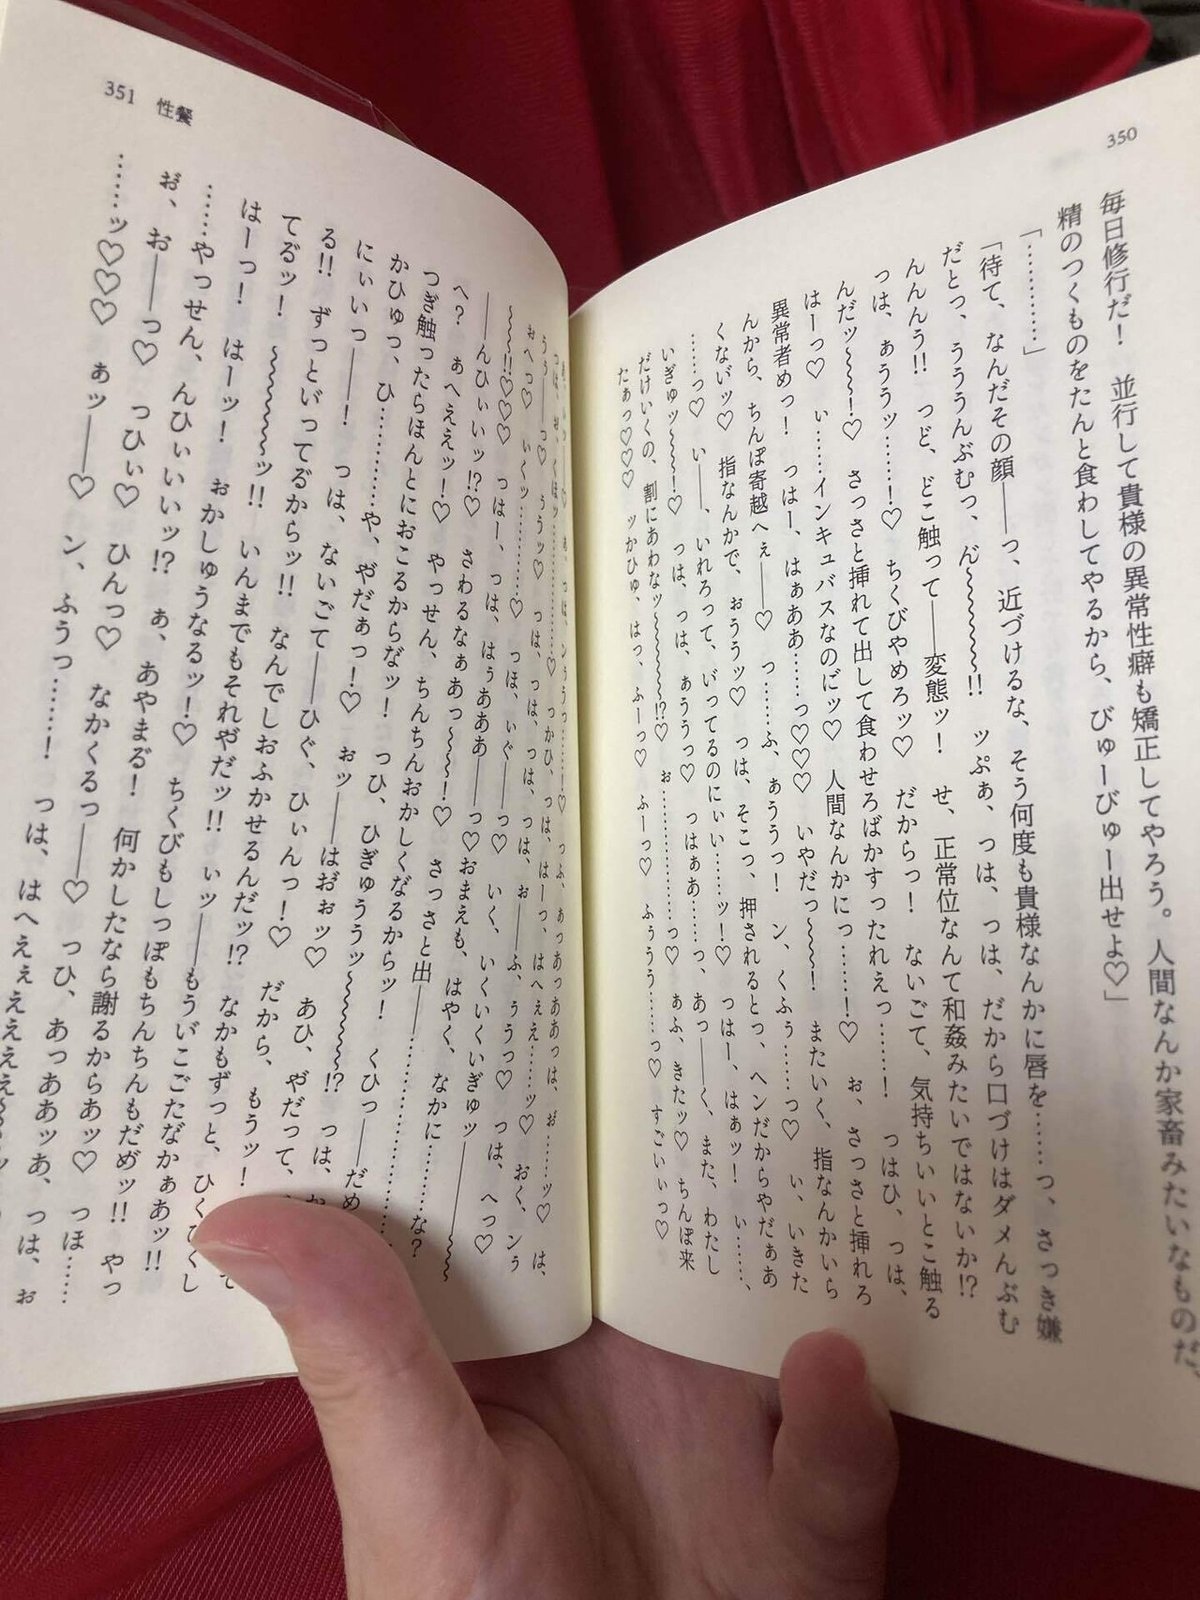 350
毎日修行だ！　並行して貴様の異常性癖も矯正してやろう。人間なんか家畜みたいなものだ、
精のつくものをたんと食わしてやるから、びゅーびゅー出せよ♡」
「…………」
「待て、なんだその顔――っ、近づけるな、そう何度も貴様なんかに唇を……っ、さっき嫌
だとっ、うううんぶむっ、ん゛～～～～!!　ッぷぁ、つは、っは、だから口づけはダメんぶむ
んんんう!!　っど、どこ触って――変態ッ！　せ、正常位なんて和姦みたいではないか!?
っは、ぁううッ……！♡　ちくびやめろッ♡　だからっ！　ないごて、気持ちいいとこ触る
んだッ～～～！♡　さっさと挿れて出して食わせろばかすったれえっ……！　っはひ、っは、
はーっ♡　い……インキュバスなのに゛ッ♡　人間なんかにっ……！♡　お、さっさと挿れろ
異常者めっ！　っはー、はぁああ……っ♡♡♡　いやだっ～～～！　またいく、指なんかいら
んから、ちんぽ寄越へぇ――♡　っ……ふ、ぁううっ！　ン、くふぅ……っ♡　い、いきた
くない゛ッ♡　指なんかで、ぉううッ♡　っは、そこっ、押されるとっ、ヘンだからやだぁあ
……っ♡　い――、いれろって、い゛ってるのにぃい……ッ！♡　っはー、はぁッ！　い……、
いぎゅッ～～～！♡　っは、っは、ぁううっ♡　っはぁあ……っ、あっ――く、また、わたし
だけいくの、割にあわな゛ッ～～～～～!?♡　ぉ…………っ♡　ぁふ、きたッ♡　ちんぽ来
たぁっ♡♡♡　ッかひゅ、はっ、ふーっ♡　ふーっ♡　ふぅうう……っ♡　すごいぃっ♡
351　性餐
～～～!!♡♡♡　っはー、っは、はぅあああ――っ♡おまえも、はやく、なかに…………な？
へ？　ぁへええッ！♡　やっせん、ちんちんおかしくな゛るからッ！　くひっ――だめ
つぎ触ったらほんとにおこるからな゛ッ！　っひ、ひぎゅううッ～～～～～!?　っは、
かひゅっ、ひ…………や、や゛だぁっ！♡　ぉッ――はお゛ぉッ♡　あひ、や゛だって、
にぃいっ――！　っは、ないごて――ひぐ、ひぃんっ！♡　だから、もうッ！
る!!　ずっとい゛ってるからッ!!　なんでしおふかせるんだッ!?　なかもずっと、ひくひくし
てる゛ッ！　～～～～～～ッ!!　いんまでもそれや゛だッ!!　ぃッ――もうい゛ごごだな゛かぁあッ!!
はーっ！　はーッ！　ぉかしゅうなるッ！♡　ちくびもしっぽもちんちんもだめ゛ッ!!　やっ
……やっせん、んひぃいいッ!?　ぁ、あやまる゛！　何かしたなら謝るからあッ♡　っほ……
お゛、お――っ♡　っひぃ♡　ひんっ♡　なかくるっ――♡　っひ、あっああッあ、っは、ぉ
……ッ♡♡♡　ぁッ――♡　ン、ふうっ……！　っは、はへえぇ